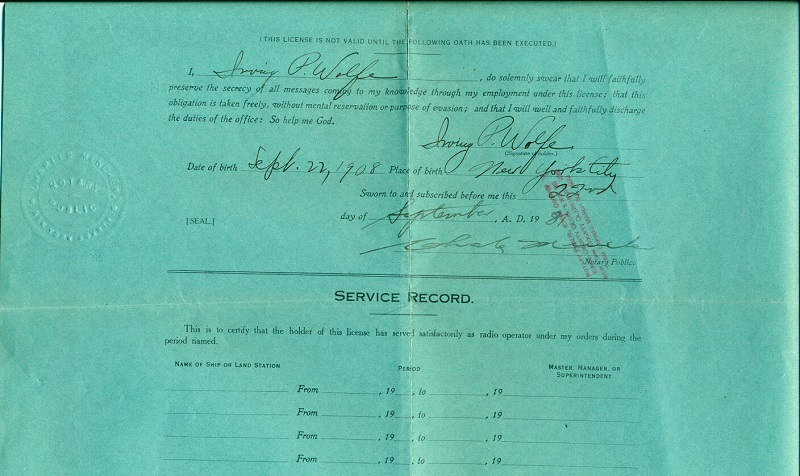 [THIS LICENSE IS NOT VALID UNTIL THE FOLLOWING OATH HAS BEEN EXECUTED.]
I, Irving P. Wolfe, do solemnly swear that I will faithfully
preserve the secrecy of all messages coming to my knowledge through my employment under this license; that this
obligation is taken freely, without mental reservation or purpose of evasion; and that I will well and faithfully discharge
the duties of the office: So help me God.
Irving P. Wolfe
(Signature of holder.)
Date of birth Sept. 22, 1908 Place of birth New York City
Sworn to and subscribed before me this 22nd
[SEAL] day of September, A. D. 19
NOTARY
PUBLIC
Notary Public.
SERVICE RECORD.
This is to certify that the holder of this license has served satisfactorily as radio operator under my orders during the
period named.
NAME OF SHIP OR LAND STATION PERIOD MASTER, MANAGER, OR
SUPERINTENDENT
From , 19 , to , 19
From , 19 , to , 19
From , 19 , to , 19
From , 19 , to , 19